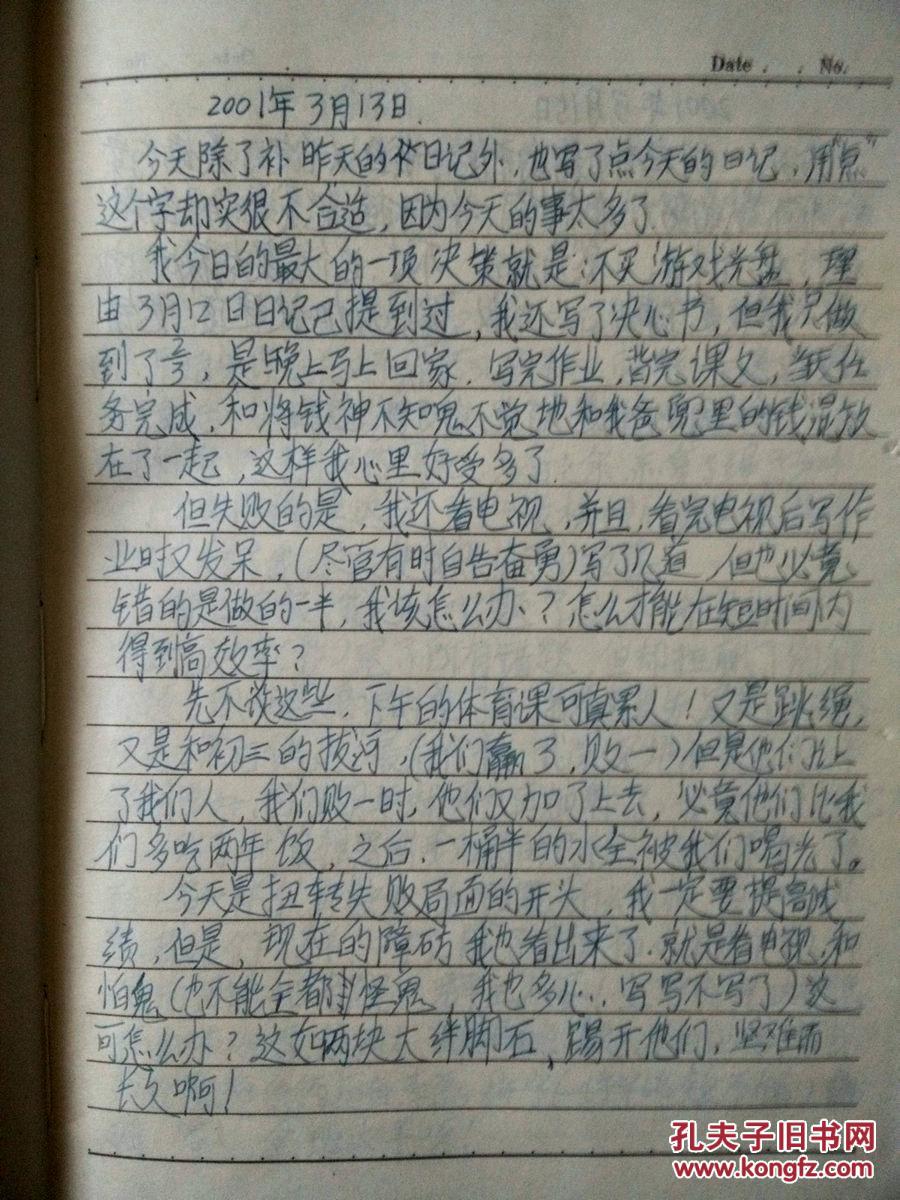 Date . . No.
2001年3月13日.
今天除了补昨天的日记外,也写了点今天的日记,用“点”
这个字却实很不合适,因为今天的事太多了.
我今日的最大的一项决策就是:不买游戏光盘,理
由3月12日日记已提到过,我还写了决心书,但我只做
到了2/3,是晚上马上回家.写完作业,背完课文,当天任
务完成,和将钱神不知鬼不觉地和我爸兜里的钱混放
在了一起,这样我心里好受多了.
但失败的是,我还看电视,并且,看完电视后写作
业时又发呆,(尽管有时自告奋勇)写了几道,但也必竟
错的是做的一半,我该怎么办?怎么才能在短时间内
得到高效率?
先不说这些,下午的体育课可真累人!又是跳绳,
又是和初三的拔河,(我们赢3,败一)但是他们让
了我们人,我们败一时,他们又加了上去,必竟他们比我
们多吃两年饭,之后,一桶半的水全被我们喝光了。
今天是扭转失败局面的开头,我一定要提高成
绩,但是,现在的障碍我也看出来了.就是看电视,和
怕鬼(也不能全都怪鬼,我也多心..写写不写了)这
可怎么办?这如两块大绊脚石,踢开他们,坚难而
长久啊!
孔夫子旧书网
www.kongfz.com